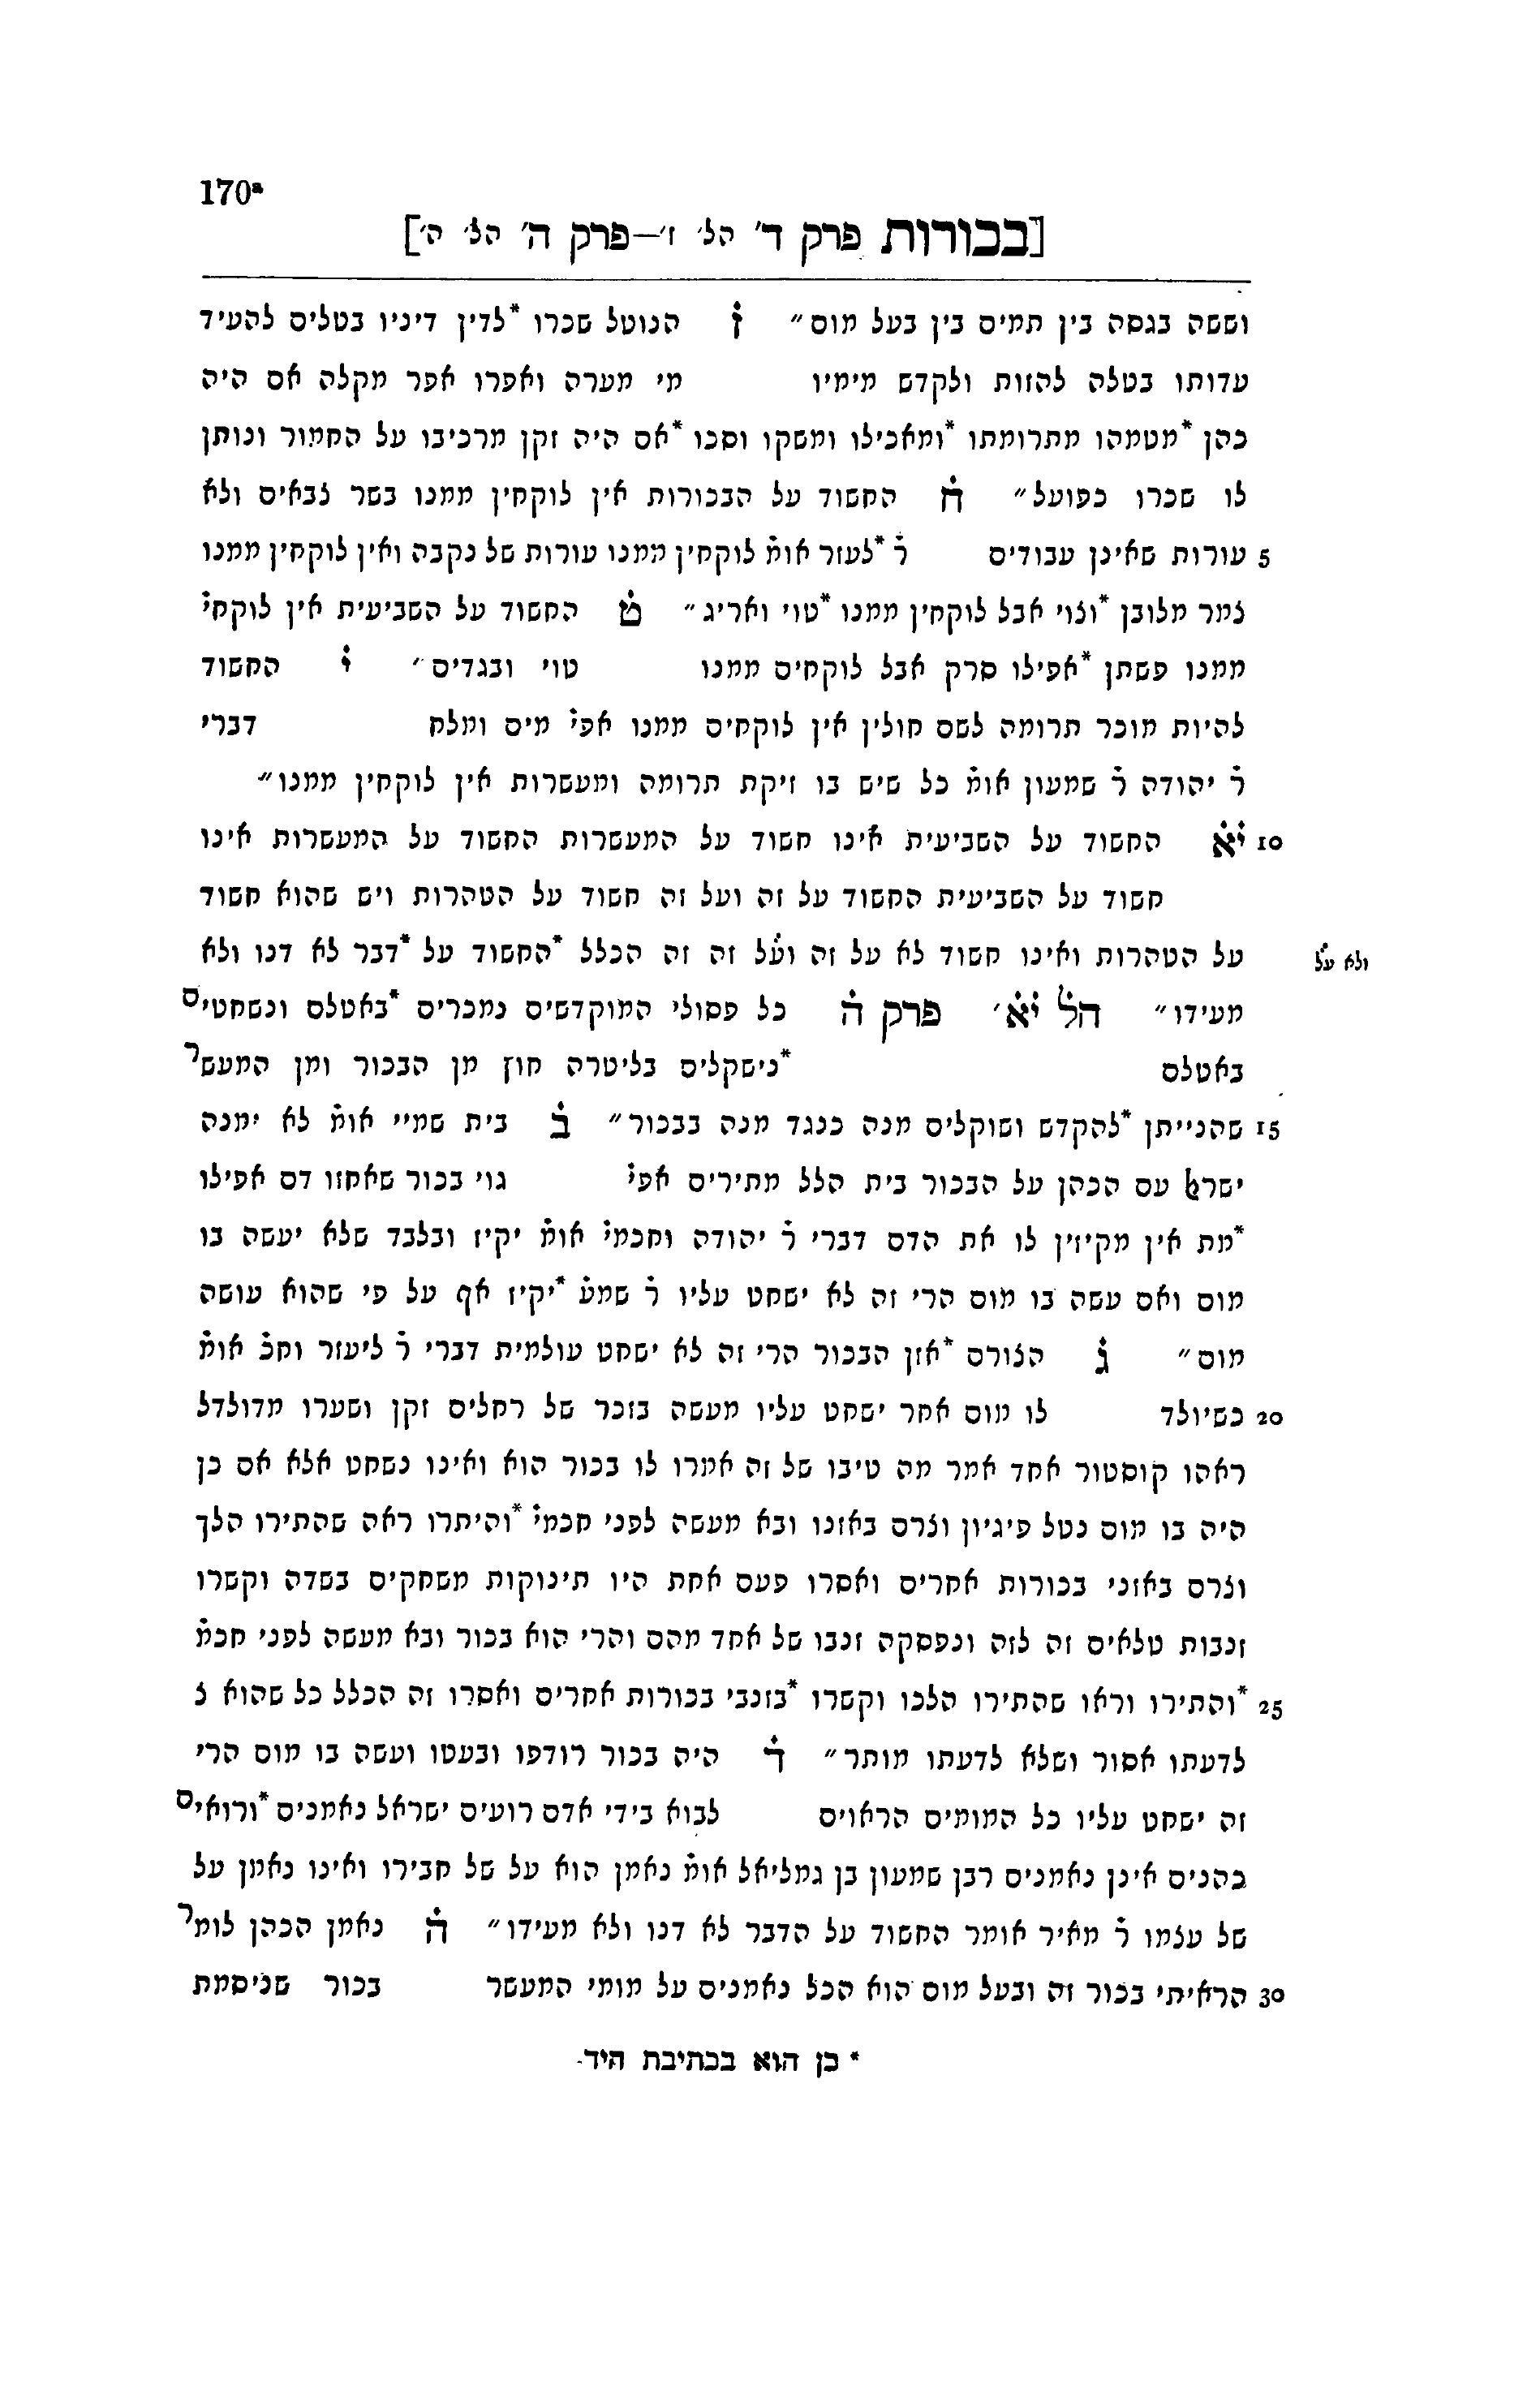 170a
[בכורות פרק ד' הל' ז'—פרק ה' הל' ה']
וששה בגסה בין תמים בין בעל מום״ זׄ הנוטל שכרו *לדין דיניו בטלים להעיד
עדותו בטלה להזות ולקדש מימיו מי מערה ואפרו אפר מקלה אם היה
כהן *מטמהו מתרומתו *ומאכילו ומשקו וסכו *אם היה זקן מרכיבו על החמור ונותן
לו שכרו כפועל״ חׄ החשוד על הבכורות אין לוקחין ממנו בשר צבאים ולא
5 עורות שאינן עבודים רׄ *לעזר אומׄ לוקחין ממנו עורות של נקבה ואין לוקחין ממנו
צמר מלובן *וצוי אבל לוקחין ממנו *טוי ואריג״ טׄ החשוד על השביעית אין לוקחיׄ
ממנו פשתן *אפילו סרק אבל לוקחים ממנו טוי ובגדים״ יׄ החשוד
להיות מוכר תרומה לשם חולין אין לוקחים ממנו אפיׄ מים ומלח דברי
רׄ יהודה רׄ שמעון אומׄ כל שיש בו זיקת תרומה ומעשרות אין לוקחין ממנו״
10 יׄאׄ החשוד על השביעית אינו חשוד על המעשרות החשוד על המעשרות אינו
חשוד על השביעית החשוד על זה ועל זה חשוד על הטהרות ויש שהוא חשוד
על הטהרות ואינו חשוד לא על זה ועׄל זה זה הכלל *החשוד על *דבר לא דנו ולא
ולא עׄל
מעידו״ הלׄ יׄאׄ' פרק הׄ כל פסולי המוקדשים נמכרים *באטלס ונשחטים
באטלס *נישקלים בליטרה חוץ מן הבכור ומן המעשר
15 שהנייתן *להקדש ושוקלים מנה כנגד מנה בבכור״ בׄ בית שמיי אומׄ לא ימנה
ישרﭏ עם הכהן על הבכור בית הלל מתירים אפיׄ גוי בכור שאחזו דם אפילו
*מת אין מקיזין לו את הדם דברי רׄ יהודה וחכמיׄ אומׄ יקיז ובלבד שלא יעשה בו
מום ואם עשה בו מום הרי זה לא ישחט עליו רׄ שמעׄ *יקיז אף על פי שהוא עושה
מום״ גׄ הצורם *אזן הבכור הרי זה לא ישחט עולמית דברי רׄ ליעזר וחכׄ אומׄ
20 כשיולד לו מום אחר ישחט עליו מעשה בזכר של רחלים זקן ושערו מדולדל
ראהו קוסטור אחד אמר מה טיבו של זה אמרו לו בכור הוא ואינו נשחט אלא אם כן
היה בו מום נטל פיגיון וצרם באזנו ובא מעשה לפני חכמיׄ *והיתרו ראה שהתירו הלך
וצרם באזני בכורות אחרים ואסרו פעם אחת היו תינוקות משחקים בשדה וקשרו
זנבות טלאים זה לזה ונפסקה זנבו של אחד מהם והרי הוא בכור ובא מעשה לפני חכמׄ
25 *והתירו וראו שהתירו הלכו וקשרו *בזנבי בכורות אחרים ואסרו זה הכלל כל שהוא צ
לדעתו אסור ושלא לדעתו מותר״ דׄ היה בכור רודפו ובעטו ועשה בו מום הרי
זה ישחט עליו כל המומים הראוים לבוא בידי אדם רועים ישראל נאמנים *ורואים
בהנים אינן נאמנים רבן שמעון בן גמליאל אומׄ נאמן הוא על של חבירו ואינו נאמן על
של עצמו רׄ מאיר אומר החשוד על הדבר לא דנו ולא מעידו״ הׄ נאמן הכהן לומר
30 הראיתי בכור זה ובעל מום הוא הכל נאמנים על מומי המעשר בכור שניסמת
* כן הוא בכתיבת היד.